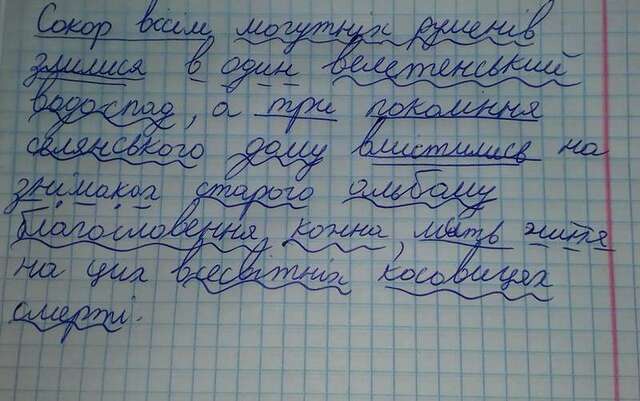 Сокор вісім могутніх руменів
злилися в один велетенський
водоспад, а три покоління
селянського дому вмістились на
знімаках старого альбому
благословення кожна, мать життя
на цих всесвітніх косовицях
смерті.